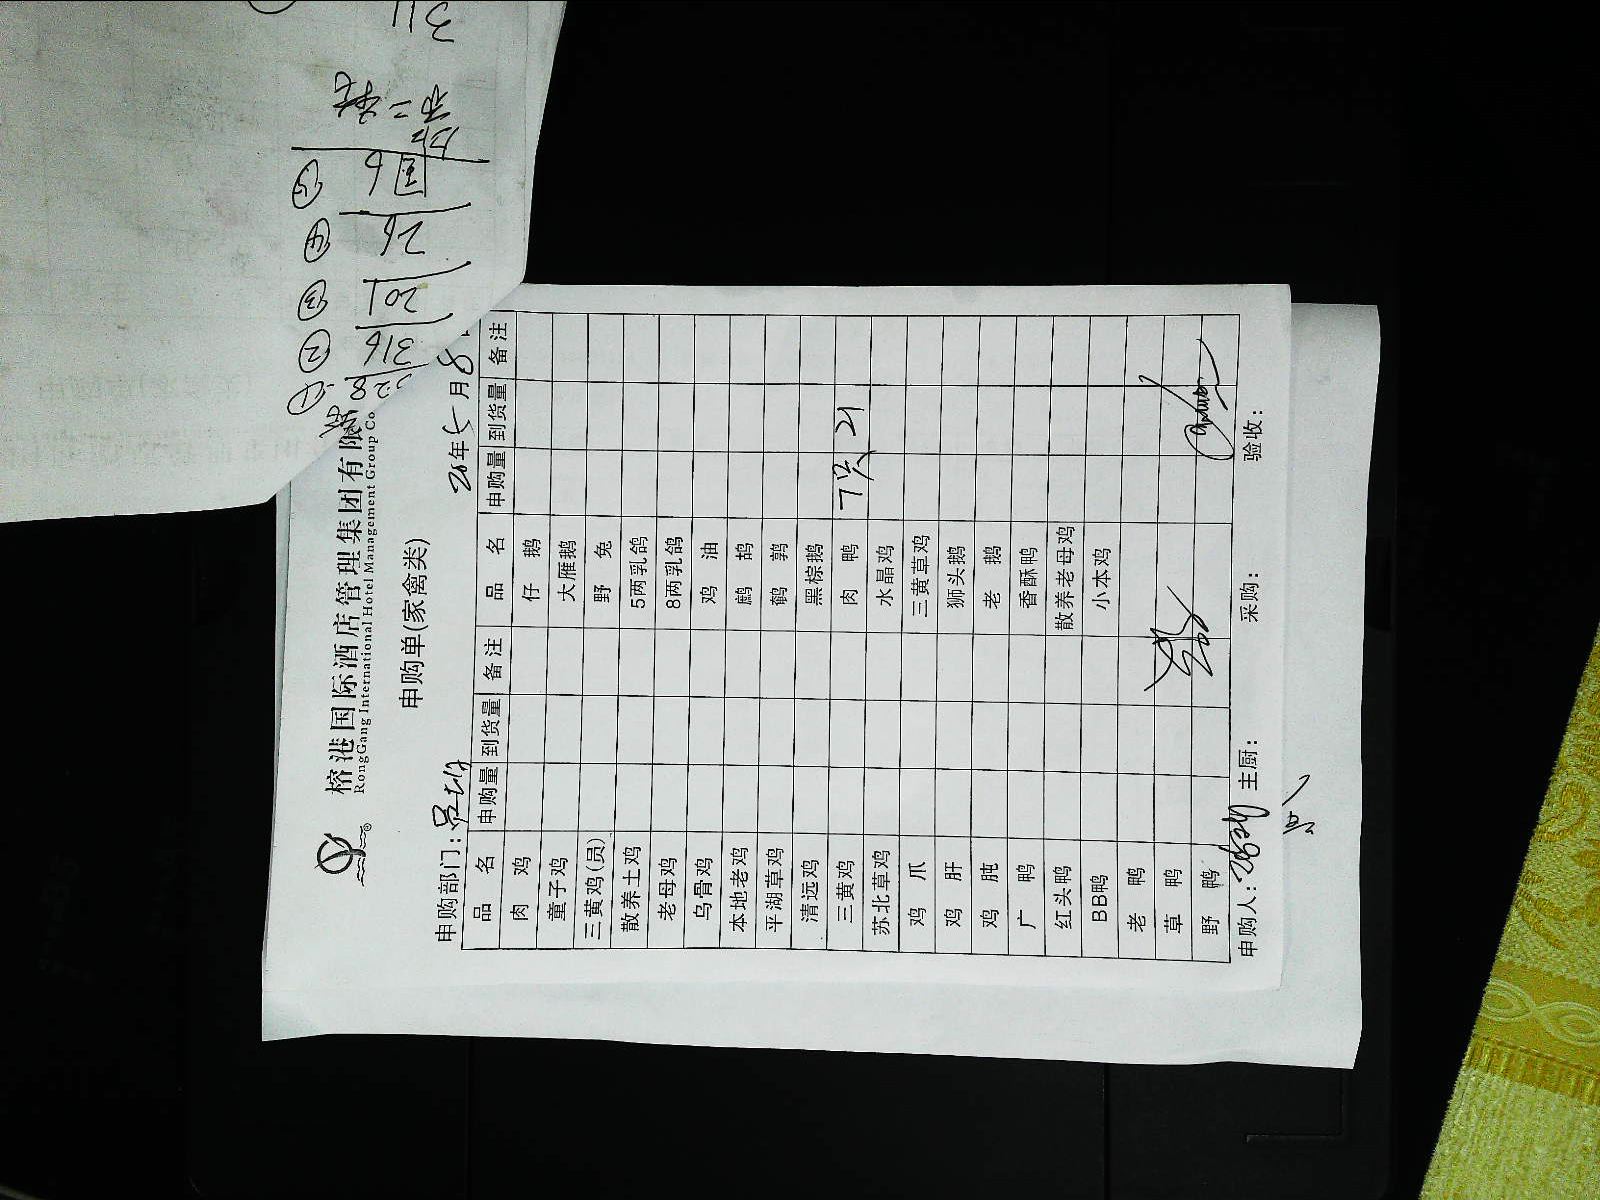 榕港国际酒店管理集团有限
RongGang International Hotel Management Group Co
申购单(家禽类)
申购部门: 年5月8
品名 申购量 到货量 备注 品名 申购量 到货量 备注
肉鸡 仔鹅
童子鸡 大雁鹅
三黄鸡(员) 野兔
散养土鸡 5两乳鸽
老母鸡 8两乳鸽
乌骨鸡 鸡油
本地老鸡 鹧鸪
平湖草鸡 鹌鹑
清远鸡 黑棕鹅
三黄鸡 肉鸭 7只 21
苏北草鸡 水晶鸡
鸡爪 三黄草鸡
鸡肝 狮头鹅
鸡肫 老鹅
广鸭 香酥鸭
红头鸭 散养老母鸡
BB鸭 小本鸡
老鸭
草鸭
野鸭
申购人: 主厨: 采购: 验收:
① 328
② 316
③ 201
④ 26
⑤ 6
311